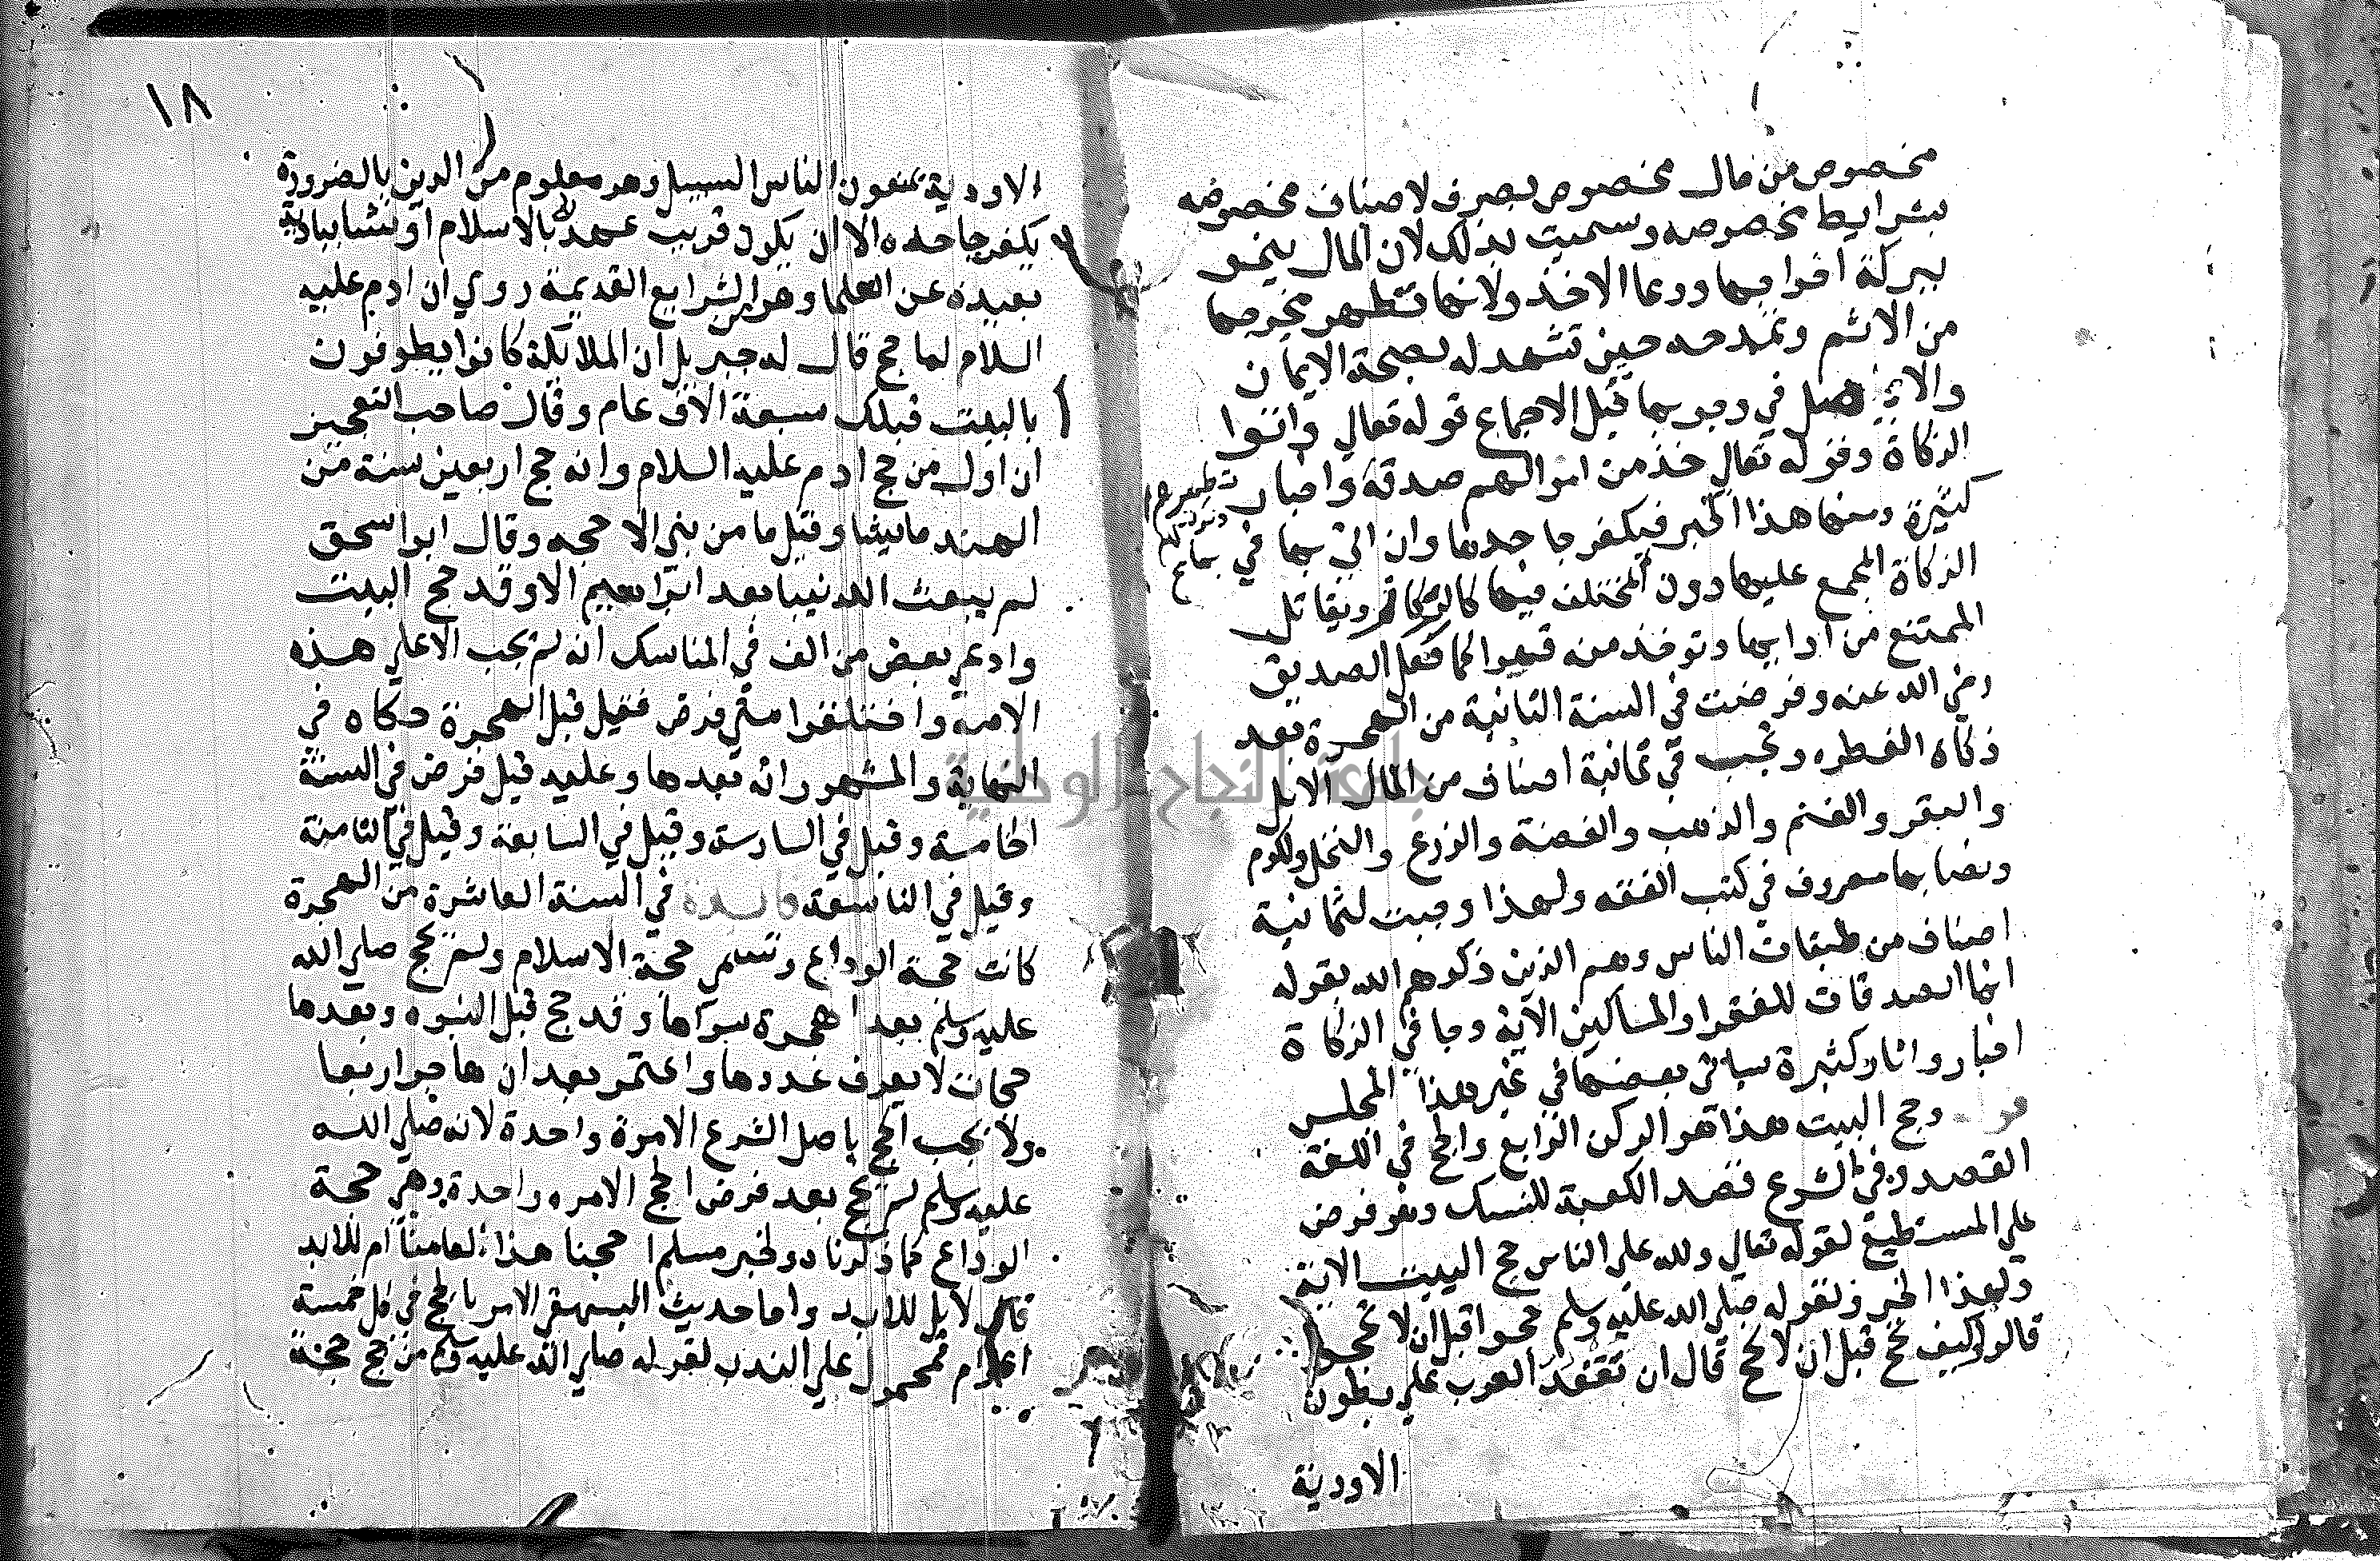 مخصوص من مال مخصوص يصرف لاصناف مخصوصه
بشرايط مخصوصه وسميت بذلك لان المال ينمو
ببركة اخراجها ودعا الاخذ ولانها تطهر مخرجها
من الاثم وتمدحه حين تشهد له بصحة الايمان
والاصل في وجوبها قبل الاجماع قوله تعالي واتوا
الزكاة وقوله تعالي خذ من اموالهم صدقة واخبار
تطهرهم
وتزكيهم
بها
كثيرة ومنها هذا الخبر فيكفر جاحدها وان اتي بها في
الزكاة المجمع عليها دون المختلف فيها كالركاز ويقاتل
الممتنع من ادايها وتوخذ منه قهرا كما فعل الصديق
رضي الله عنه وفرضت في السنة الثانية من الهجرة بعد
زكاه الفطره وتجب في ثمانية اصناف من المال الابل
والبقر والغنم والذهب والفضة والزرع والنخل والكرم
ونصابها معروف في كتب الفقه ولهذا وجبت لثمانية
اصناف من طبقات الناس وهم الذين ذكرهم الله بقوله
انما الصدقات للفقرا والمساكين الآية وجا في الزكاة
اخبار واثار كثيرة سياتي بعضها في غير هذا المجلس
قوله وحج البيت هذا هو الركن الرابع والحج في اللغة
القصد وفي الشرع قصد الكعبة للنسك وهو فرض
علي المستطيع لقوله تعالي ولله علي الناس حج البيت الاية
ولهذا الخبر ولقوله صلي الله عليه وسلم حجوا قبل ان لا تحجوا
قالوا وكيف نحج قبل ان لا نحج قال ان تقعد العرب علي بطون
الاودية
١٨
الاودية يمنعون الناس السبيل وهو معلوم من الدين بالضرورة
يكفر جاحده الا ان يكون قريب عهد بالاسلام او نشا ببادية
بعيدة عن العلما وهو من الشرايع القديمة روي ان ادم عليه
السلام لما حج قال له جبريل ان الملائكة كانوا يطوفون
بالبيت قبلك سبعة الاف عام وقال صاحب التعجيز
ان اول من حج ادم عليه السلام وانه حج اربعين سنة من
الهند ماشيا وقيل ما من نبي الا حجه وقال ابو اسحق
لم يبعث الله نبيا بعد ابراهيم الا وقد حج البيت
وادعي بعض من الف في المناسك انه لم يجب الا علي هذه
الامة واختلفوا متي فرض فقيل قبل الهجرة حكاه في
النهاية والمشهور انه بعدها وعليه قيل فرض في السنة
الخامسة وقيل في السادسة وقيل في السابعة وقيل في الثامنة
وقيل في التاسعة فائدة في السنة العاشرة من الهجرة
كانت حجة الوداع وتسمي حجة الاسلام ولم يحج صلي الله
عليه وسلم بعد الهجرة سواها وقد حج قبل النبوه وبعدها
حجات لا يعرف عددها واعتمر بعد ان هاجر اربعا
ولا يجب الحج باصل الشرع الا مرة واحدة لانه صلي الله
عليه وسلم لم يحج بعد فرض الحج الا مره واحدة وهي حجة
الوداع كما ذكرنا ولخبر مسلم احجنا هذا لعامنا ام للابد
قال لا بل للابد واما حديث البيهقي الامر بالحج في كل خمسة
اعوام فمحمول علي الندب لقوله صلي الله عليه وسلم من حج حجة
جامعة النجاح الوطنية